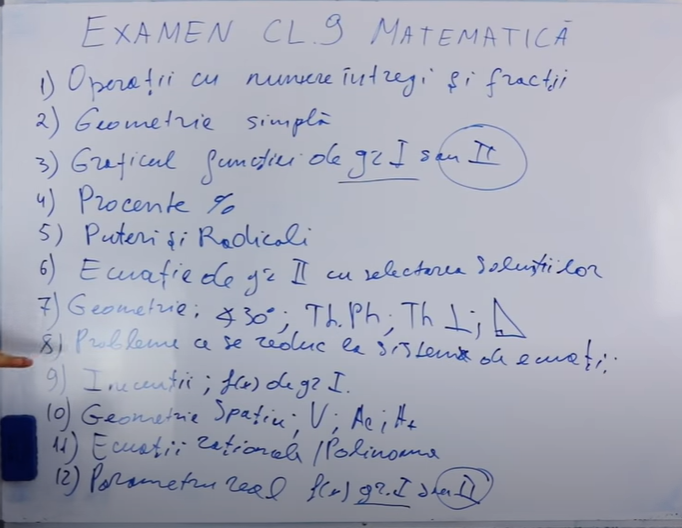 EXAMEN CL.9 MATEMATICĂ
1) Operații cu numere întregi și fracții
2) Geometrie simplă
3) Graficul funcției de gr I sau II
4) Procente %
5) Puteri și Radicali
6) Ecuație de gr II cu selectarea soluțiilor
7) Geometrie; ∢30°; Th.Ph; Th ⊥; ◺
8) Probleme ce se reduc la sisteme de ecuații;
9) Inecuații; f(x) de gr I.
10) Geometrie Spațiu; V; Al; At
11) Ecuații raționale / Polinoame
12) Parametru real f(x) gr. I sau II